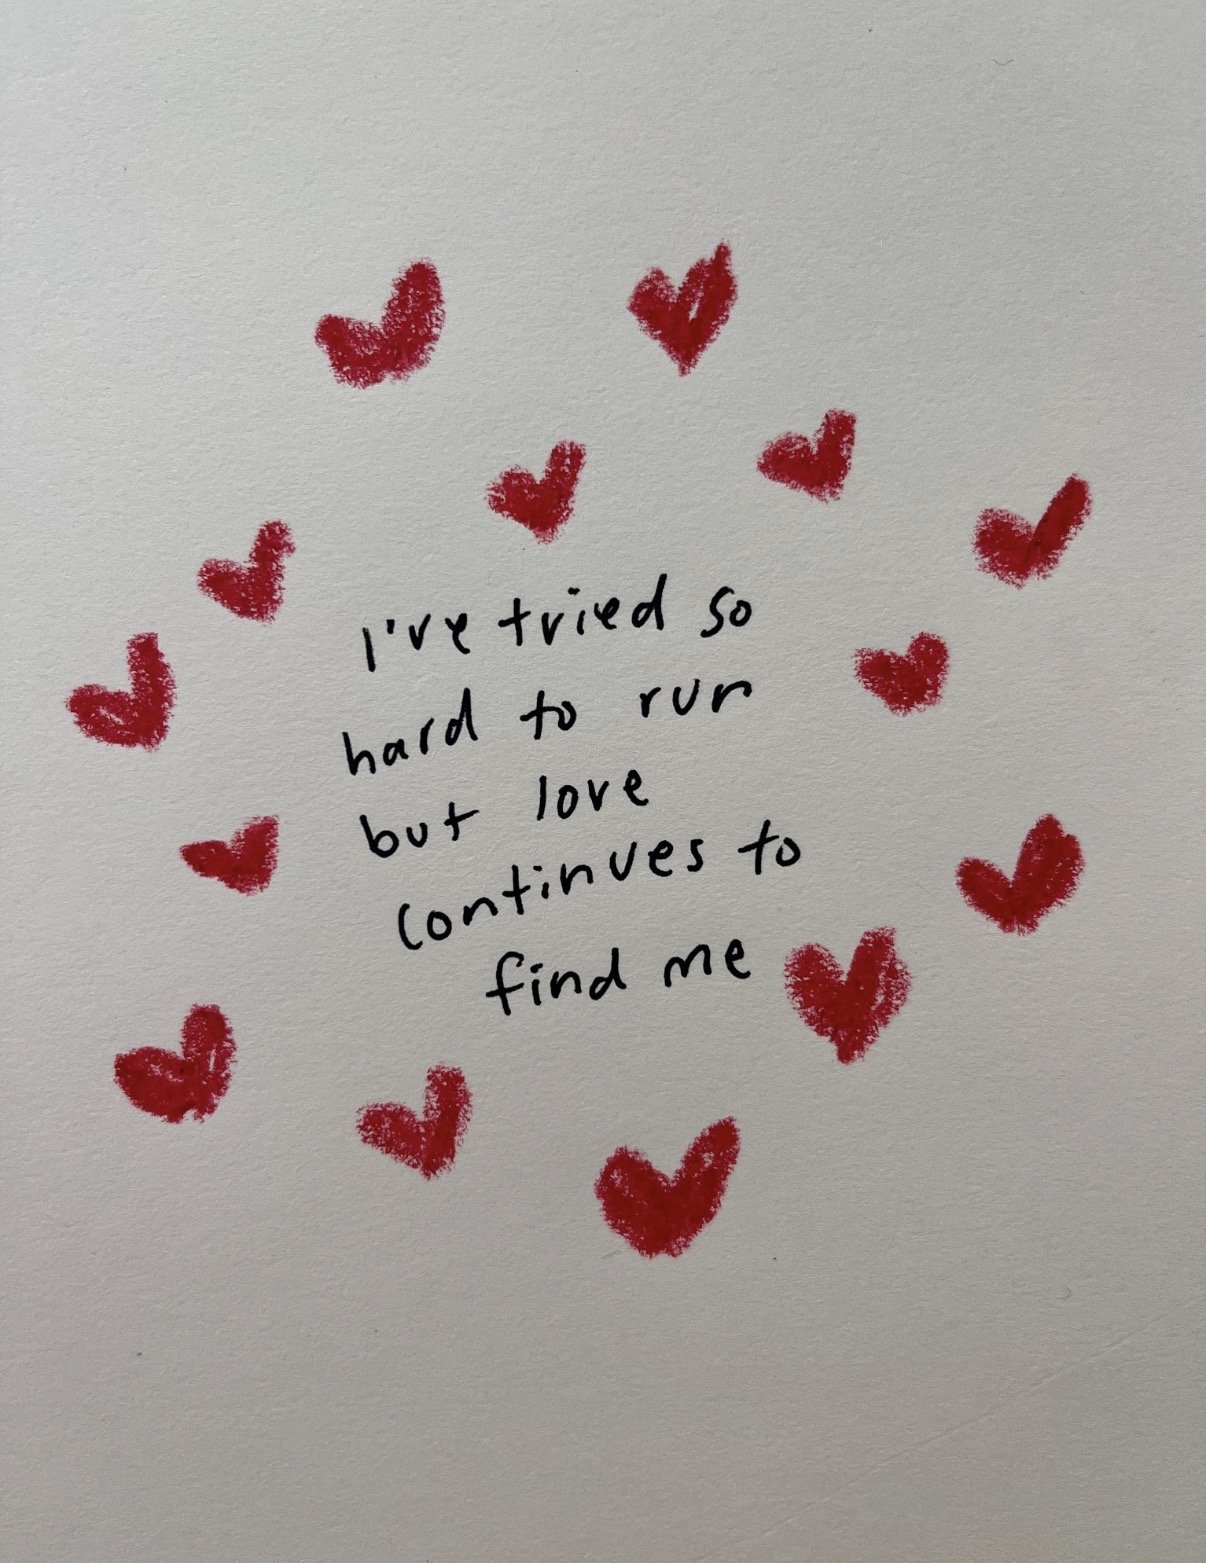 I've tried so
hard to run
but love
continues to
find me